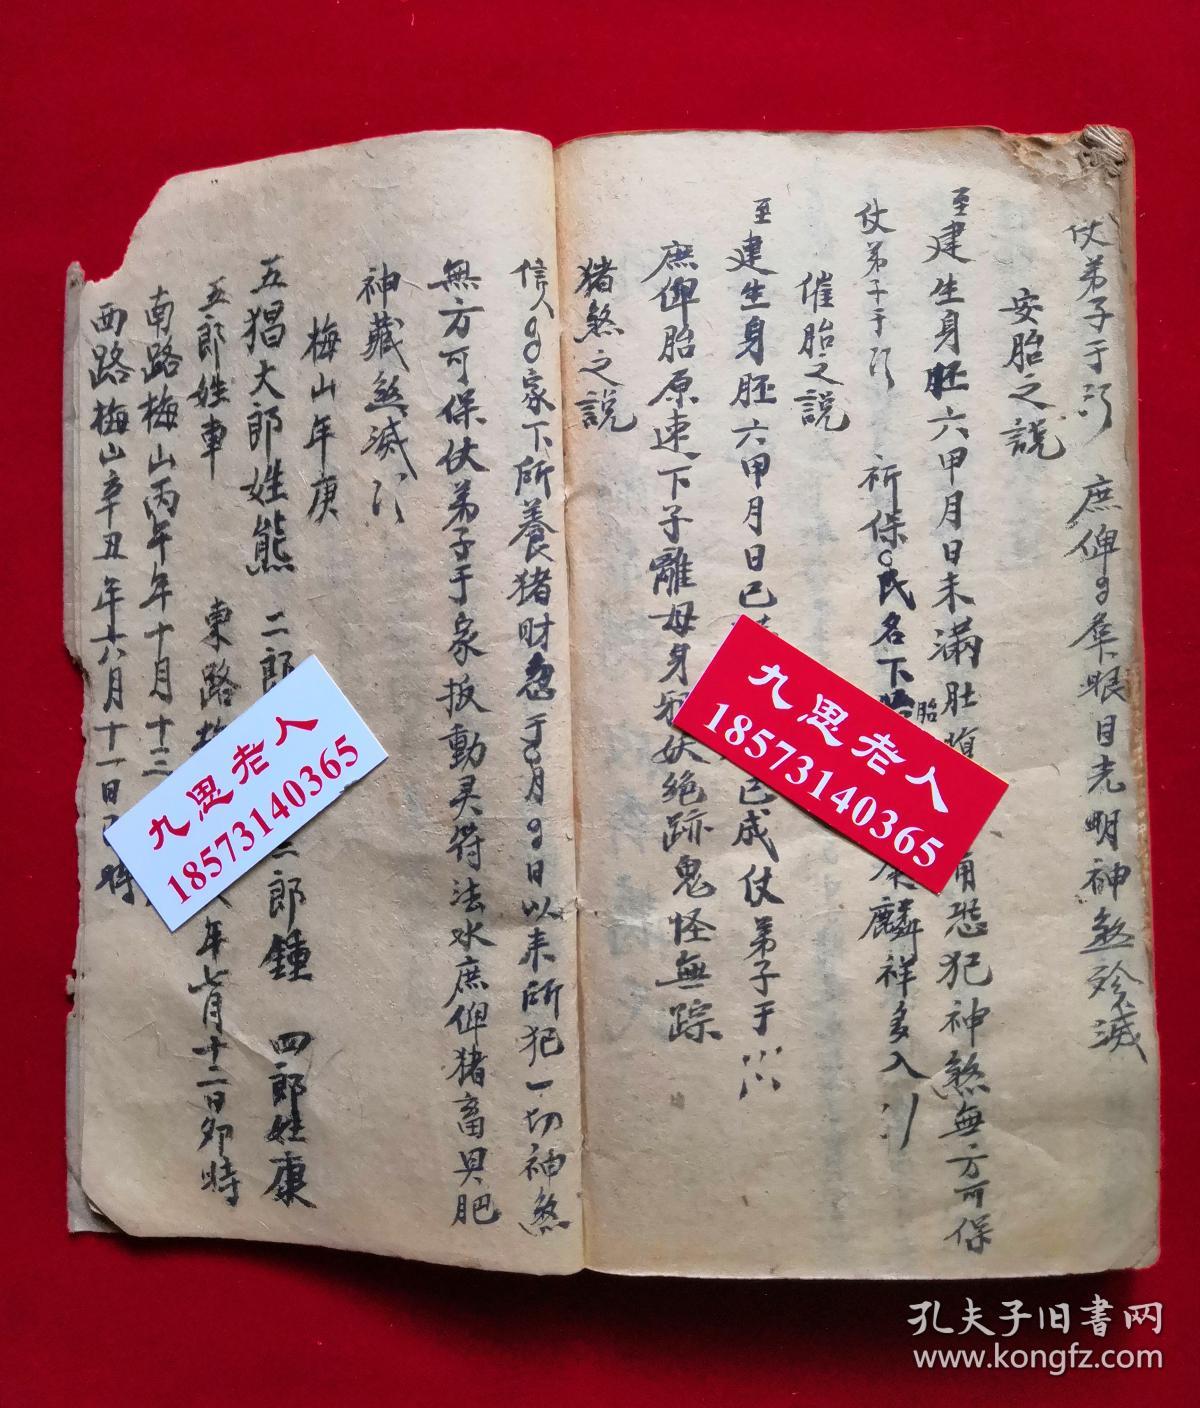 仗弟子于 庶俾 羣眼目光明神煞殄滅
安胎之説
至建生身胚六甲月日未滿肚 恐犯神煞無方可保
仗弟子于 祈保 民名下胎 麟祥多入
催胎之説
至建生身胚六甲月日已 已成仗弟子于
庶俾胎原速下子離母身邪妖絶跡鬼怪無踪
猪煞之説
信人 家下所養猪財忽于 月 日以来所犯一切神煞
無方可保仗弟子于家扳動灵符法水庶俾猪畜貝肥
神藏煞滅
梅山年庚
五猖大郎姓熊 二郎 三郎鍾 四郎姓康
五郎姓車 東路 年七月十二日卯時
南路梅山丙午年十月十三
西路梅山辛丑年六月十一日 時
九思老人
18573140365
九思老人
18573140365
孔夫子旧書网
www.kongfz.com